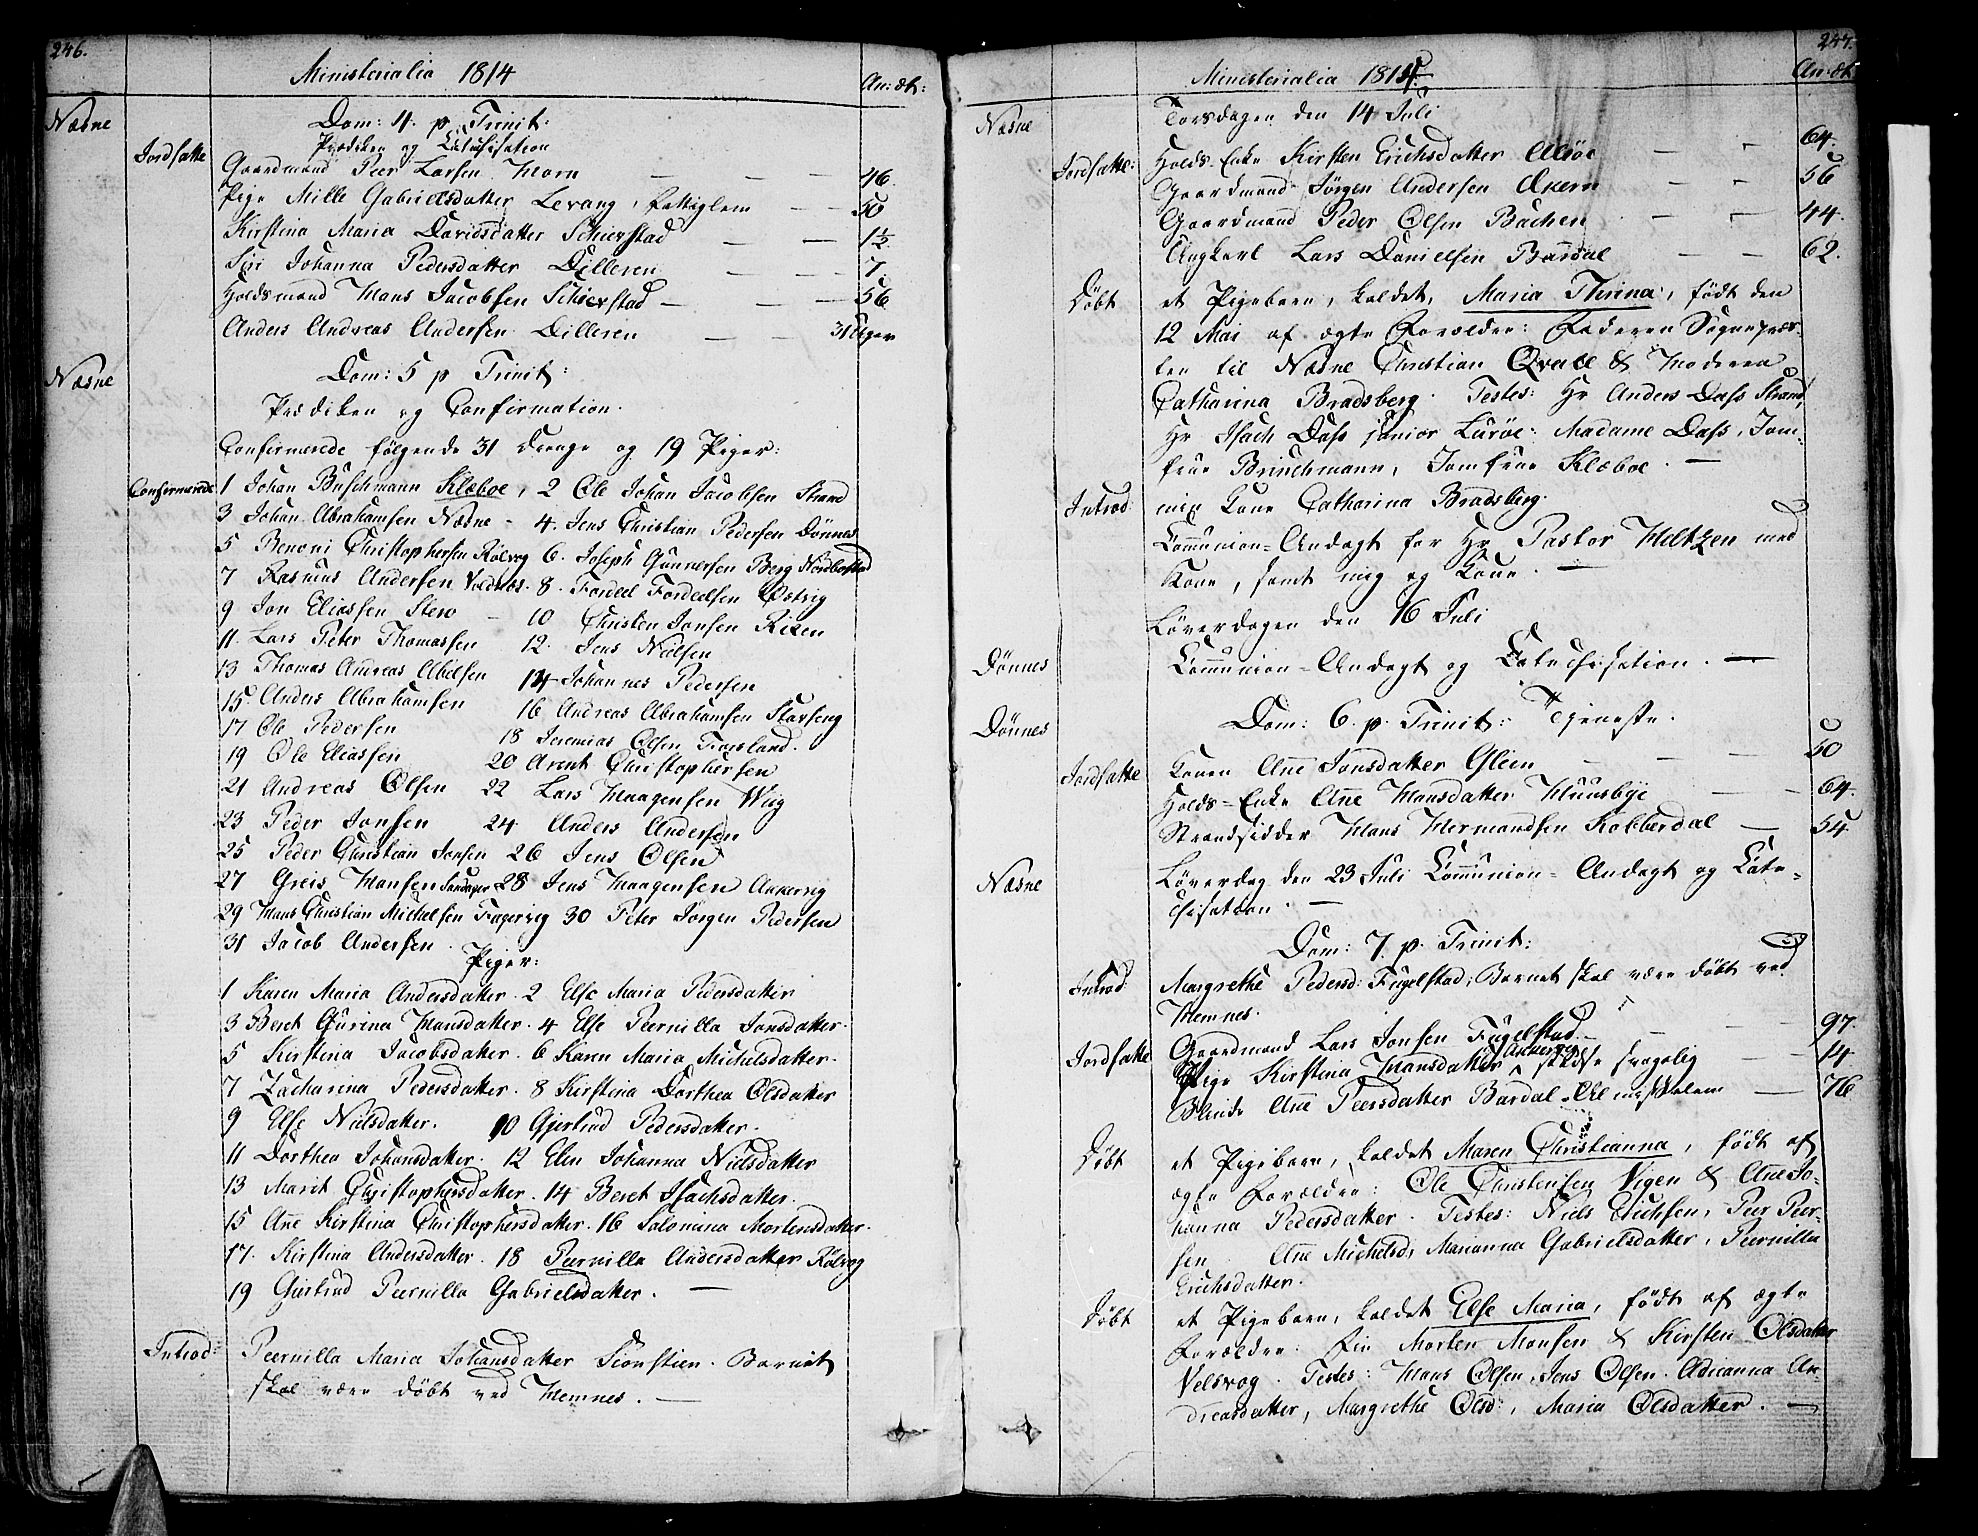 246.
Ministerialia 1814
An: æt:
Næsne
Dom: 4. p. Trinit:
Prædiken og Catechisation
Jordfæstte
Gaardmand Peer Larsen Horn — — — 46.
Pige Mille Gabrielsdatter Levang, fattiglem — — 50
Kirstina Maria Davidsdatter Schierstad — — 1½
Siri Johanna Pedersdatter Dilleren — — — 7.
Holdsmand Hans Jacobsen Schierstad — — — 56
Anders Andreas Andersen Dilleren — — 31 Uger
Næsne
Dom: 5 p Trinit:
Prædiken og Confirmation.
Confirmerede følgende 31 drenge og 19 Piger:
Confirmerede
1 Johan Buschmann Klæboe, 2 Ole Johan Jacobsen Strand
3 Johan Abrahamsen Næsne - 4. Jens Christian Pedersen Dønnes
5 Benoni Christophersen Rølvog 6. Joseph Gunnersen Berg
7 Rasmus Andersen 8. Fordeel Fordeelsen
9 Jon Eliassen Stero — 10 Christen Jonsen
11 Lars Peter Thomassen 12. Jens Nielsen
13 Thomas Andreas Abelsen 14 Johannes Pedersen
15 Anders Abrahamsen 16 Andreas Abrahamsen Starseng
17 Ole Pedersen 18 Jeremias Olsen Forsland.
19 Ole Eliassen 20 Arent Christophersen
21 Andreas Olsen 22 Lars Haagensen Wiig
23 Peder Jonsen 24 Anders Andersen
25 Peder Christian Jonsen 26 Jens Olsen
27 Greis Hansen 28 Jens Haagensen Ankervig
29 Hans Christian Michelsen Fagervig 30 Peter Jørgen Pedersen
31 Jacob Andersen.
Piger:
1 Karen Maria Andersdatter. 2 Else Maria Pedersdatter
3 Beret Gurina Hansdatter. 4 Else Peernilla Jonsdatter.
5 Kirstina Jacobsdatter. 6 Karen Maria Michelsdatter.
7 Zacharina Pedersdatter. 8 Kirstina Dorthea Olsdatter
9 Else Nielsdatter. 10 Gjertrud Pedersdatter.
11 Dorthea Johansdatter. 12 Elen Johanna Nielsdatter
13 Marit Christophersdatter. 14 Beret Isachsdatter.
15 Ane Kirstina Christophersdatter. 16 Salomina Mortensdatter.
17. Kirstina Andersdatter. 18 Peernilla Andersdatter Rølvog
19 Giertrud Peernilla Gabrielsdatter. —
Introd:
Peernilla Maria Johansdatter Sionstien. Barnet
skal være døbt ved Hemnes. —
247.
Ministerialia 1814.
An: æt:
Næsne
Torsdagen den 14 Juli
Jordfæstte:
Holds-Enke Kirsten Erichsdatter — - 64.
Gaardmand Jørgen Andersen Akern — - 56
Gaardmand Peder Olsen Bachen — - 44.
Ungkarl Lars Danielsen Bardal — — 62.
Døbt
et Pigebarn, kaldet, Maria Thrina, født den
12 Mai af ægte Forældre: Faderen Sognepræs-
ten til Næsne Christian Qvale & Moderen
Catharina Bradsberg. Testes: Hr Anders Dass Strand,
Hr Isach Dass junior Lurøe. Madame Dass, Jom-
frue Brinchmann, Jomfrue Klæboe. —
Introd
min Kone Catharina Bradsberg.
Communion-Andagt for Hr Pastor Heltzen med
Kone, samt mig og Kone. —
Løverdagen den 16 Juli
Dønnes
Communion-Andagt og Catechisation. —
Dønnes
Dom: 6. p. Trinit: Tjeneste.
Jordfæstte
Konen Ane Jonsdatter Glein — — 50
Holds-Enke Ane Hansdatter Huusbye — — 64.
Strandsidder Hans Hermandsen Kobberdal — 54
Næsne
Løverdag den 23 Juli Communion-Andagt og Cate-
chisation. —
Dom: 7. p. Trinit:
Introd
Margrethe Pedersd: Fugelstad, Barnet skal være døbt ved
Hemnes.
Jordfæstte
Gaardmand Lars Jonsen Fugelstad — — — 97.
Pige Kirstina Hansdatter Ankervig svagelig — — 14
Blinde Ane Peersdatter Bardal — 76
Døbt
et Pigebarn, kaldet Maren Christianna, født af
ægte Forældre: Ole Christensen Vigen & Ane Jo-
hanna Pedersdatter. Testes: Niels Erichsen, Peer Peer-
sen. Ane Michelsd, Marianna Gabrielsdatter, Peernilla
Erichsdatter.
Døbt
et Pigebarn, kaldet Else Maria, født af ægte
Forældre: Fin Morten Monsen & Kirsten Olsdatter
Velsvog. Testes: Hans Olsen, Jens Olsen. Adrianna An-
dreasdatter, Margrethe Olsd:, Maria Olsdatter. —